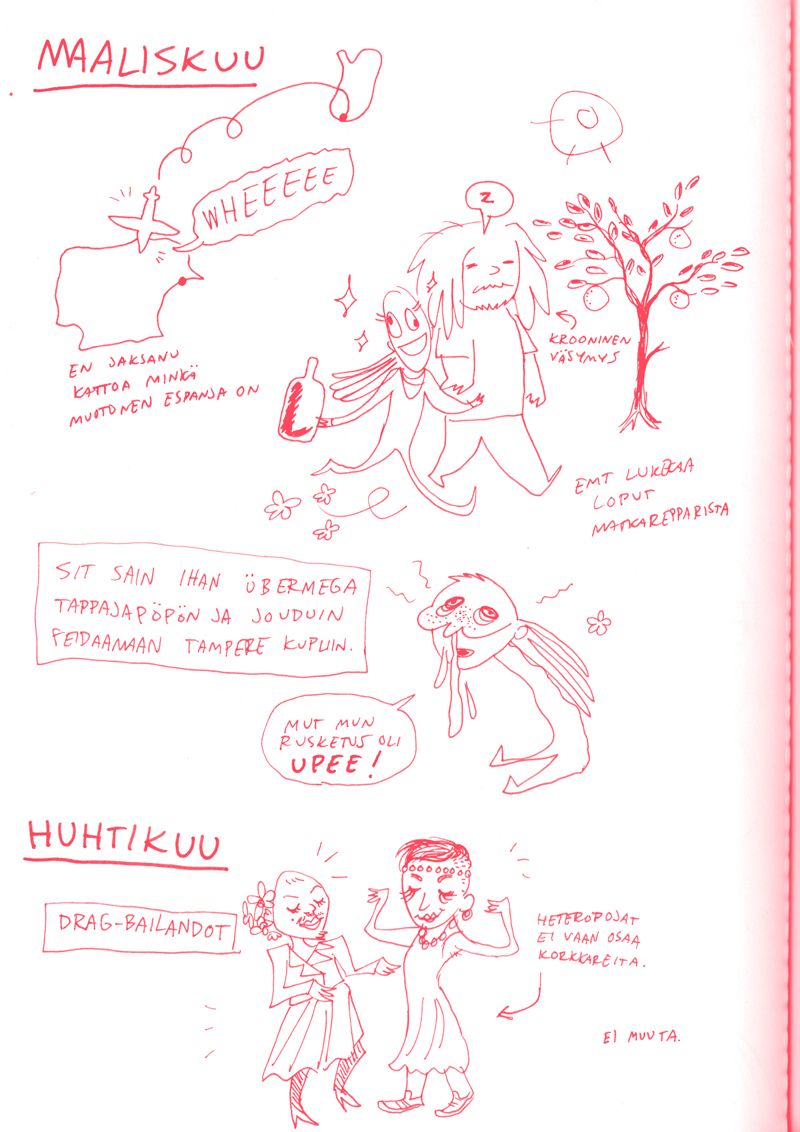 MAALISKUU
WHEEEEE
EN JAKSANU
KATTOA MINKÄ
MUOTONEN ESPANJA ON
Z
KROONINEN
VÄSYMYS
EMT LUKEKAA
LOPUT
MATKAREPPARISTA
SIT SAIN IHAN ÜBERMEGA
TAPPAJAPÖPÖN JA JOUDUIN
PEIDAAMAAN TAMPERE KUPLIIN.
MUT MUN
RUSKETUS OLI
UPEE!
HUHTIKUU
DRAG-BAILANDOT
HETEROPOJAT
EI VAAN OSAA
KORKKAREITA.
EI MUUTA.